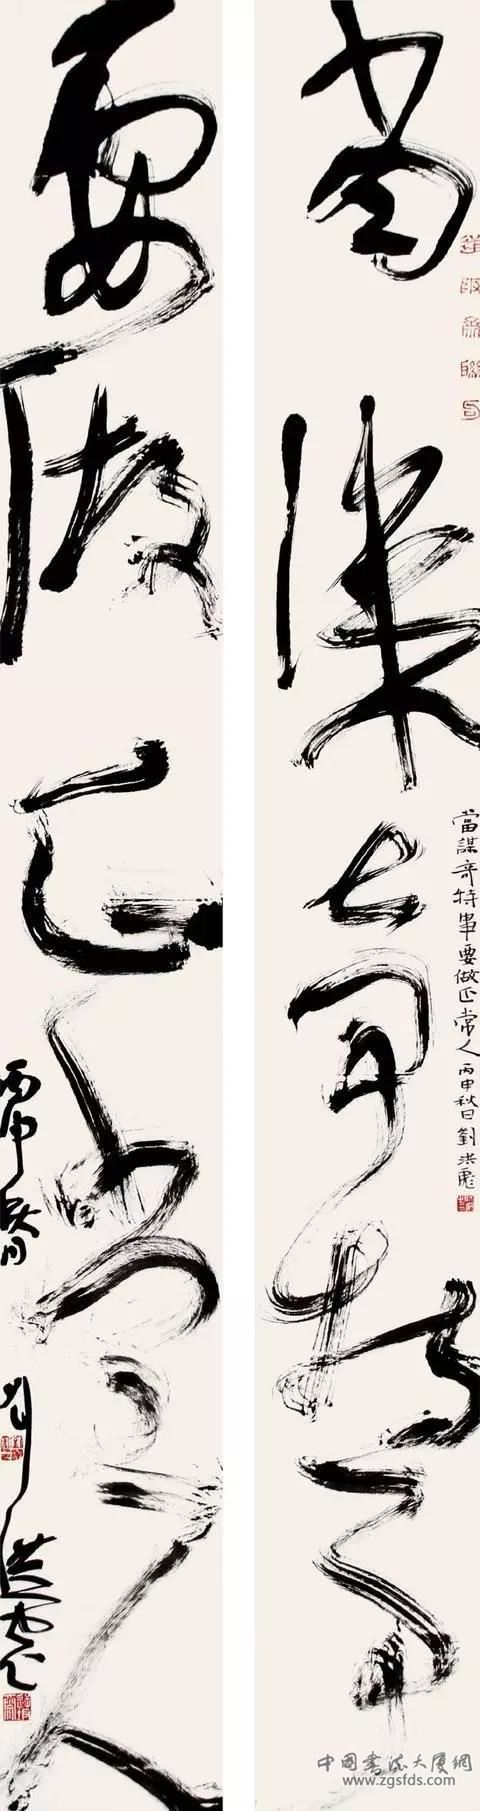 當謀奇特事
當謀奇特事要做正常人丙申秋日劉洪彪
要做正常人
丙申
劉洪彪
中國書法大廈網
www.zgsfds.com